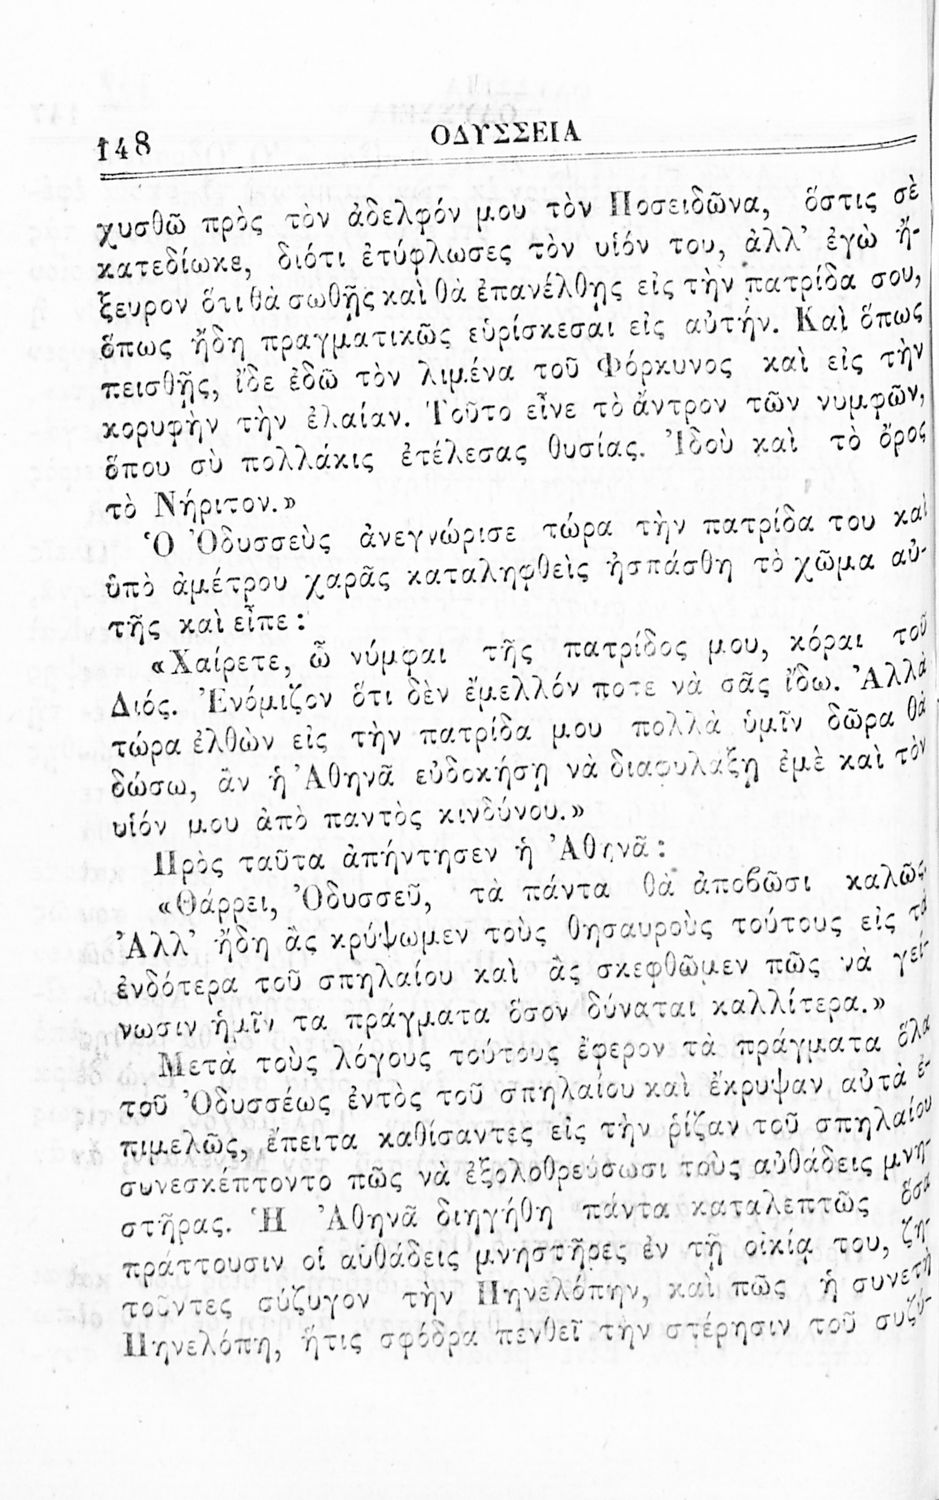 148
ΟΔΥΣΣΕΙΑ
χυσθῶ πρὸς τὸν ἀδελφόν μου τὸν Ποσειδῶνα, ὅστις σὲ
κατεδίωκε, διότι ἐτύφλωσες τὸν υἱόν του, ἀλλ' ἐγὼ ἤ-
ξευρον ὅτι θὰ σωθῇς καὶ θὰ ἐπανέλθῃς εἰς τὴν πατρίδα σου,
ὅπως ἤδη πραγματικῶς εὑρίσκεσαι εἰς αὐτήν. Καὶ ὅπως
πεισθῇς, ἴδε ἐδῶ τὸν λιμένα τοῦ Φόρκυνος καὶ εἰς τὴν
κορυφὴν τὴν ἐλαίαν. Τοῦτο εἶνε τὸ ἄντρον τῶν νυμφῶν,
ὅπου σὺ πολλάκις ἐτέλεσας θυσίας. Ἰδοὺ καὶ τὸ ὄρος
τὸ Νήριτον.»
Ὁ Ὀδυσσεὺς ἀνεγνώρισε τώρα τὴν πατρίδα του καὶ
ὑπὸ ἀμέτρου χαρᾶς καταληφθεὶς ἠσπάσθη τὸ χῶμα αὐ-
τῆς καὶ εἶπε:
«Χαίρετε, ὦ νύμφαι τῆς πατρίδος μου, κόραι τοῦ
Διός. Ἐνόμιζον ὅτι δὲν ἔμελλόν ποτε νὰ σᾶς ἴδω. Ἀλλὰ
τώρα ἐλθὼν εἰς τὴν πατρίδα μου πολλὰ ὑμῖν δῶρα θὰ
δώσω, ἂν ἡ Ἀθηνᾶ εὐδοκήσῃ νὰ διαφυλάξῃ ἐμὲ καὶ τὸν
υἱόν μου ἀπὸ παντὸς κινδύνου.»
Πρὸς ταῦτα ἀπήντησεν ἡ Ἀθηνᾶ:
«Θάρρει, Ὀδυσσεῦ, τὰ πάντα θὰ ἀποβῶσι καλῶς.
Ἀλλ' ἤδη ἂς κρύψωμεν τοὺς θησαυροὺς τούτους εἰς τὰ
ἐνδότερα τοῦ σπηλαίου καὶ ἂς σκεφθῶμεν πῶς νὰ γεί-
νωσιν ἡμῖν τα πράγματα ὅσον δύναται καλλίτερα.»
Μετὰ τοὺς λόγους τούτους ἔφερον τὰ πράγματα ὅλα
τοῦ Ὀδυσσέως ἐντὸς τοῦ σπηλαίου καὶ ἔκρυψαν αὐτὰ ἐ-
πιμελῶς, ἔπειτα καθίσαντες εἰς τὴν ῥίζαν τοῦ σπηλαίου
συνεσκέπτοντο πῶς νὰ ἐξολοθρεύσωσι τοὺς αὐθάδεις μνη-
στῆρας. Ἡ Ἀθηνᾶ διηγήθη πάντα καταλεπτῶς ὅσα
πράττουσιν οἱ αὐθάδεις μνηστῆρες ἐν τῇ οἰκίᾳ του, ζη-
τοῦντες σύζυγον τὴν Πηνελόπην, καὶ πῶς ἡ συνετὴ
Πηνελόπη, ἥτις σφόδρα πενθεῖ τὴν στέρησιν τοῦ συζύ-